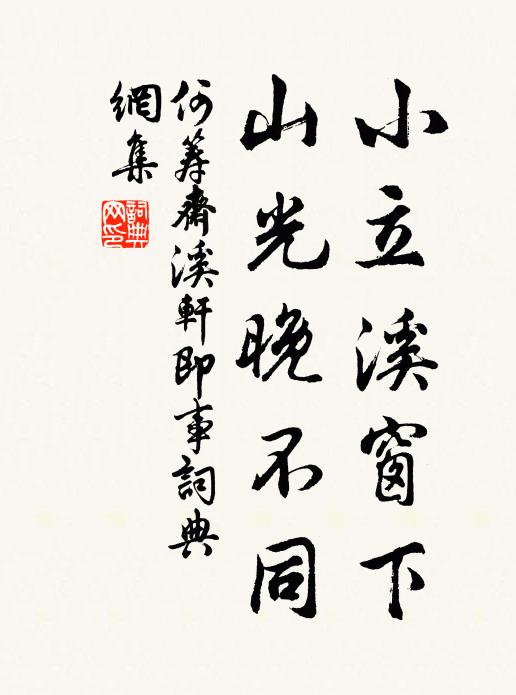 小立溪窗下
山光晚不同
何筹齋溪軒即事詞典
網集
詞典网印